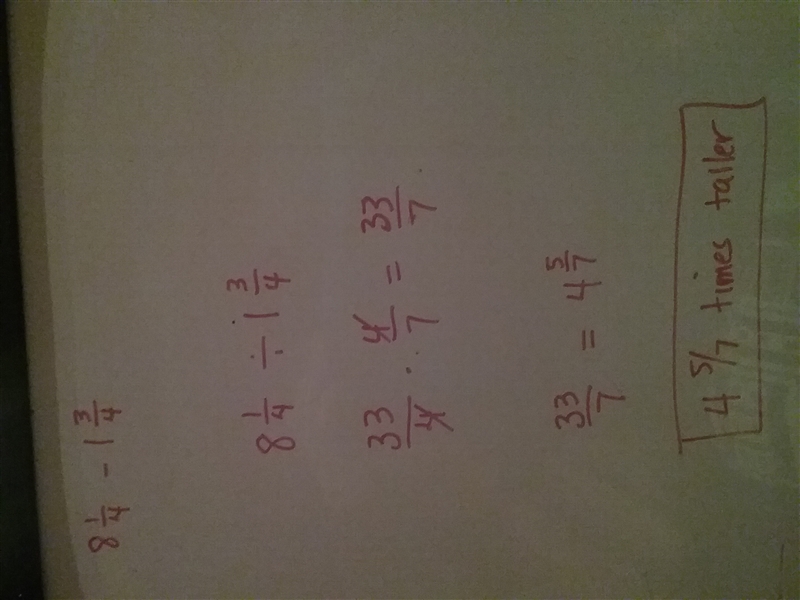 8 1/4 - 1 3/4
8 1/4 ÷ 1 3/4
33/4 · 4/7 = 33/7
33/7 = 4 5/7
4 5/7 times taller